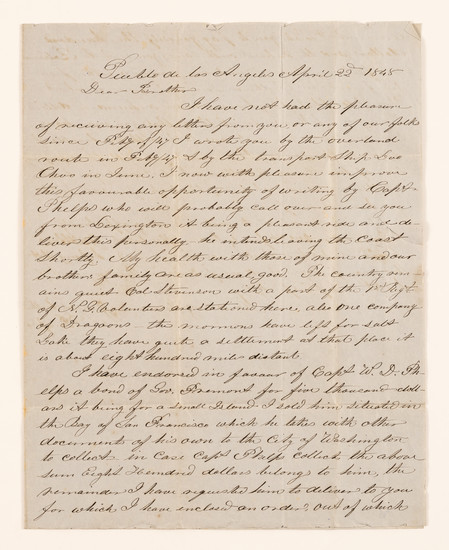 Pueblo de los Angeles April 22d 1848
Dear Brother
I have not had the pleasure
of receiving any letter from you or any of our folk
since I wrote you by the overland
route in & by the transport Ship Loo
Choo in June. I now with pleasure improve
this favourable opportunity of writing by Capt
Phelps who will probably call over and see you
from Lexington it being a pleasant ride and de
liver this personally. he intends leaving the Coast
Shortly. My health with those of mine and our
brothers family are as usual, good. The Country rem
ains quiet Col Stevenson with a part of the Regt
of N.Y. Volunteers are stationed here, also one company
of Dragoons the mormons have left for Salt
Lake they have quite a settlement at that place it
is about eight hundred mile distant.
I have endorced in favour of Capt W. D. Ph
elps a bond of Gov. Fremont for five thousand doll
ars it being for a small Island I sold him situated in
the Bay of San Francisco which he takes with other
document of his own to the City of Washington
to collect in Case Capt Phelps collect the above
sum Eight Hundred dollars belong to him, the
remainder I have requested him to deliver to you
for which I have enclosed an order, out of which